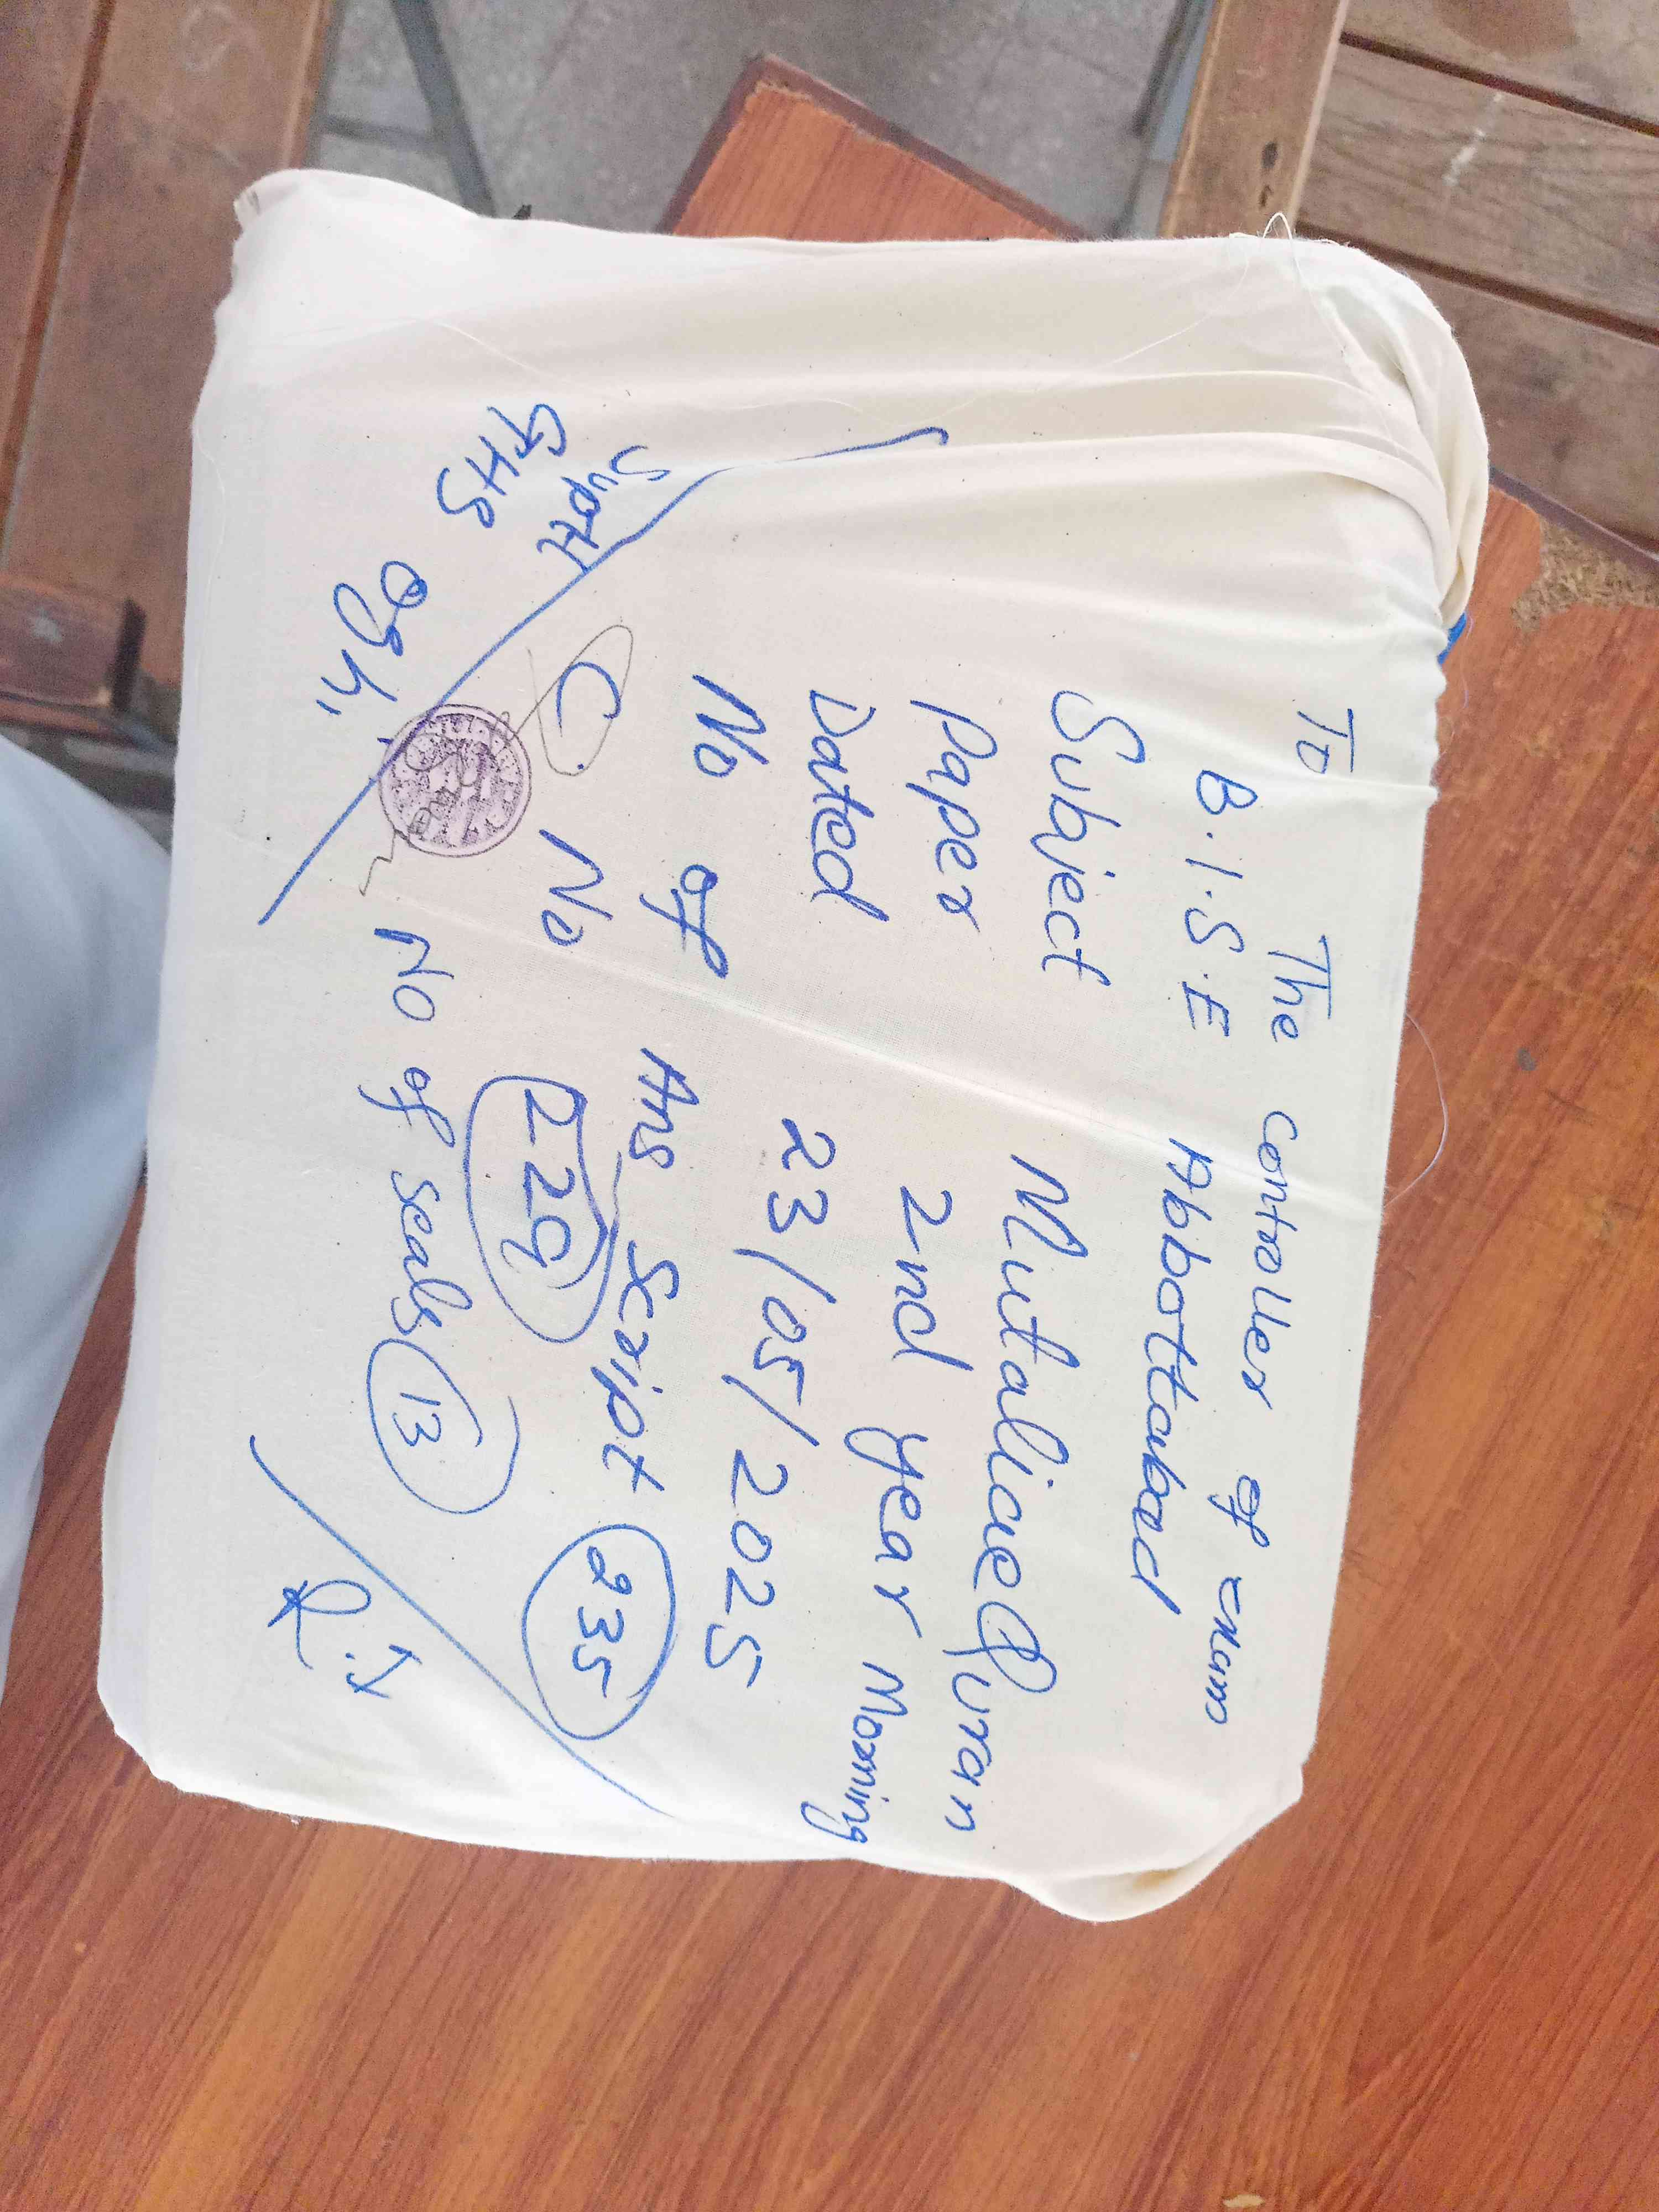 To The controller of Exam
B.I.S.E Abbottabad
Subject Mutaliae Quran
Paper 2nd year Morning
Dated 23/05/2025
No of Ans Script 235
C No 229
No of seals 13
Supdt
GHS
Oghi